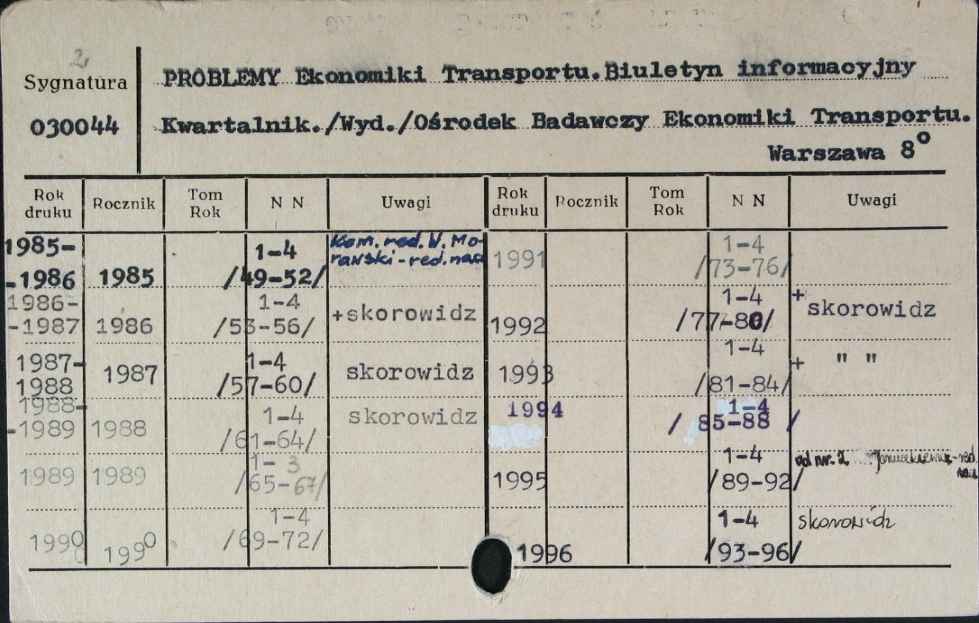 2
Sygnatura
030044
PROBLEMY Ekonomiki Transportu.Biuletyn informacyjny
Kwartalnik./Wyd./Ośrodek Badawczy Ekonomiki Transportu.
Warszawa 8°
Rok druku Rocznik Tom Rok N N Uwagi Rok druku Rocznik Tom Rok N N Uwagi
1985-
-1986 1985 1-4
/49-52/ Kom. red. W. Mo-
rawski - red. nacz
1986-
-1987 1986 1-4
/53-56/ +skorowidz
1987-
1988 1987 1-4
/57-60/ skorowidz
1988-
-1989 1988 1-4
/61-64/ skorowidz
1989 1989 1-3
/65-67/
1990 1990 1-4
/69-72/
1991 1-4
/73-76/
1992 1-4
/77-80/ + skorowidz
1993 1-4
/81-84/ + " "
1994 1-4
/ 85-88 /
1995 1-4
/89-92/ od nr. 2 - red
1996 1-4
/93-96/ skorowidz